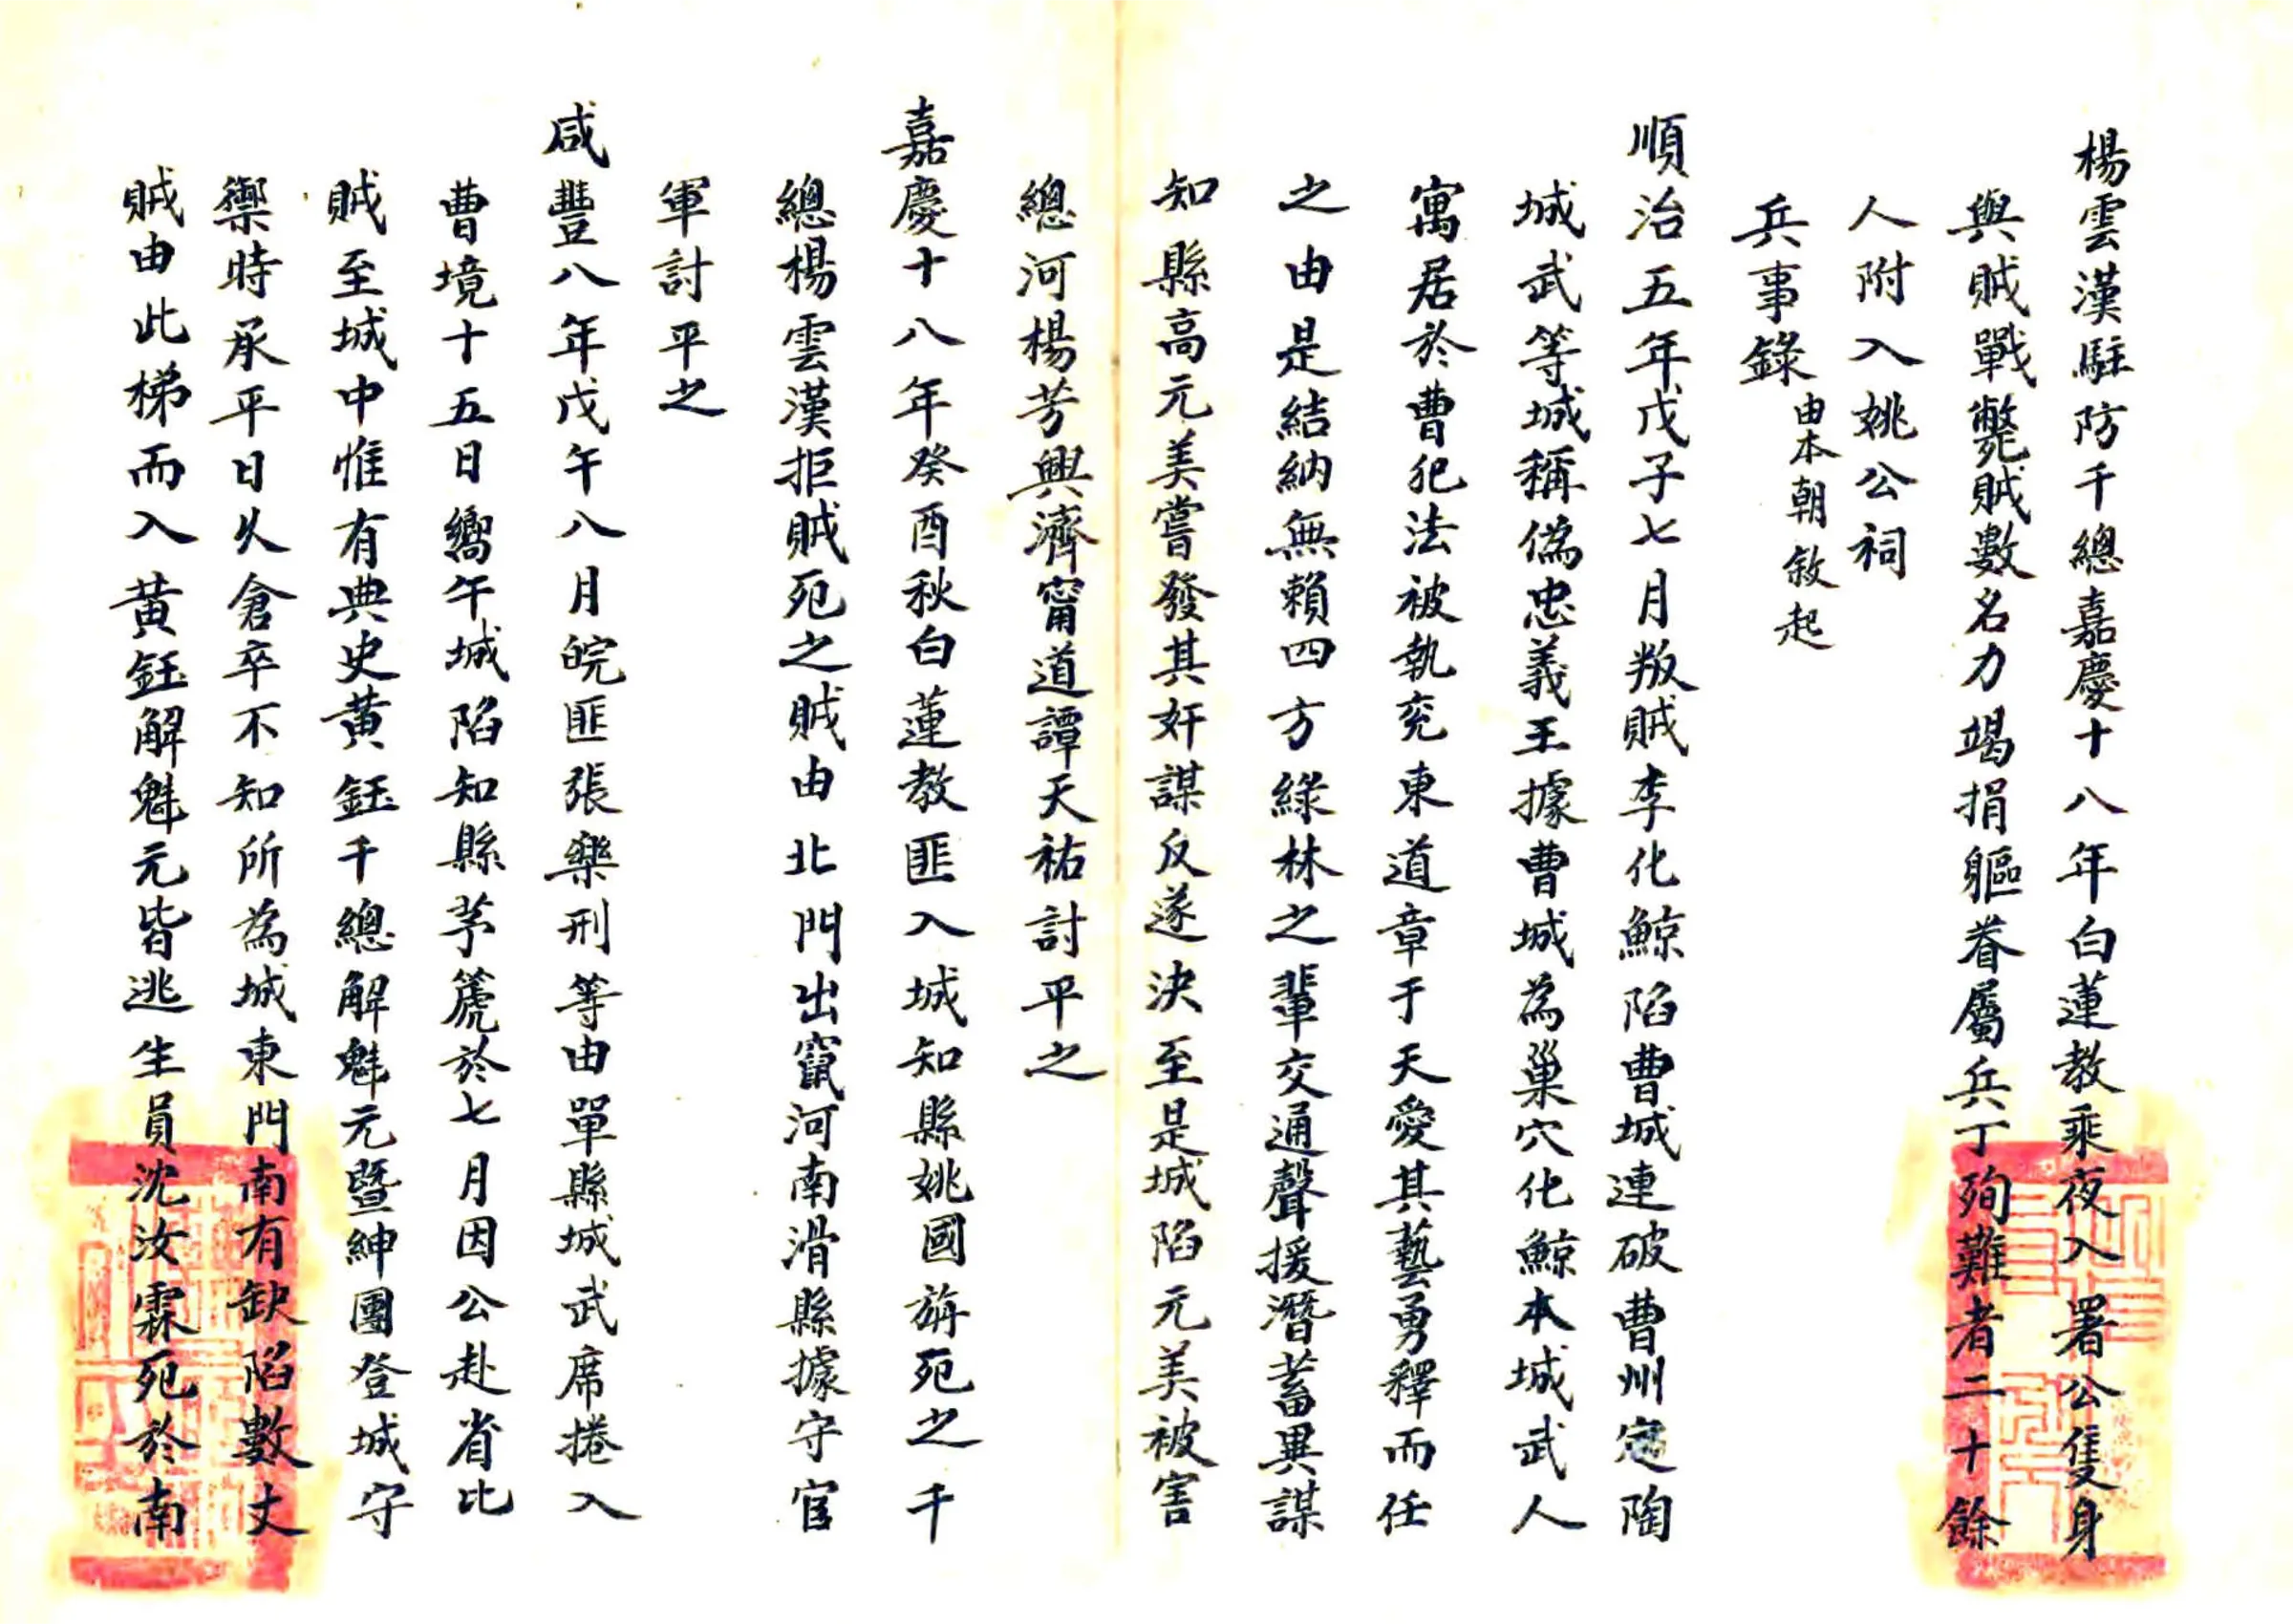 楊雲漢駐防千總嘉慶十八年白蓮教乘夜入署公隻身
與賊戰斃賊數名力竭捐軀眷屬兵丁殉難者二十餘
人附入姚公祠
兵事錄由本朝敘起
順治五年戊子七月叛賊李化鯨陷曹城連破曹州定陶
城武等城稱偽忠義王據曹城為巢穴化鯨本城武人
寓居於曹犯法被執兗東道章于天愛其藝勇釋而任
之由是結納無賴四方綠林之輩交通聲援潛蓄異謀
知縣高元美嘗發其奸謀反遂決至是城陷元美被害
總河楊芳興濟甯道譚天祐討平之
嘉慶十八年癸酉秋白蓮教匪入城知縣姚國旃死之千
總楊雲漢拒賊死之賊由北門出竄河南滑縣據守官
軍討平之
咸豐八年戊午八月皖匪張樂刑等由單縣城武席捲入
曹境十五日嚮午城陷知縣茅篪於七月因公赴省比
賊至城中惟有典史黃鈺千總解魁元暨紳團登城守
禦時承平日久倉卒不知所為城東門南有缺陷數丈
賊由此梯而入黃鈺解魁元皆逃生員沈汝霖死於南